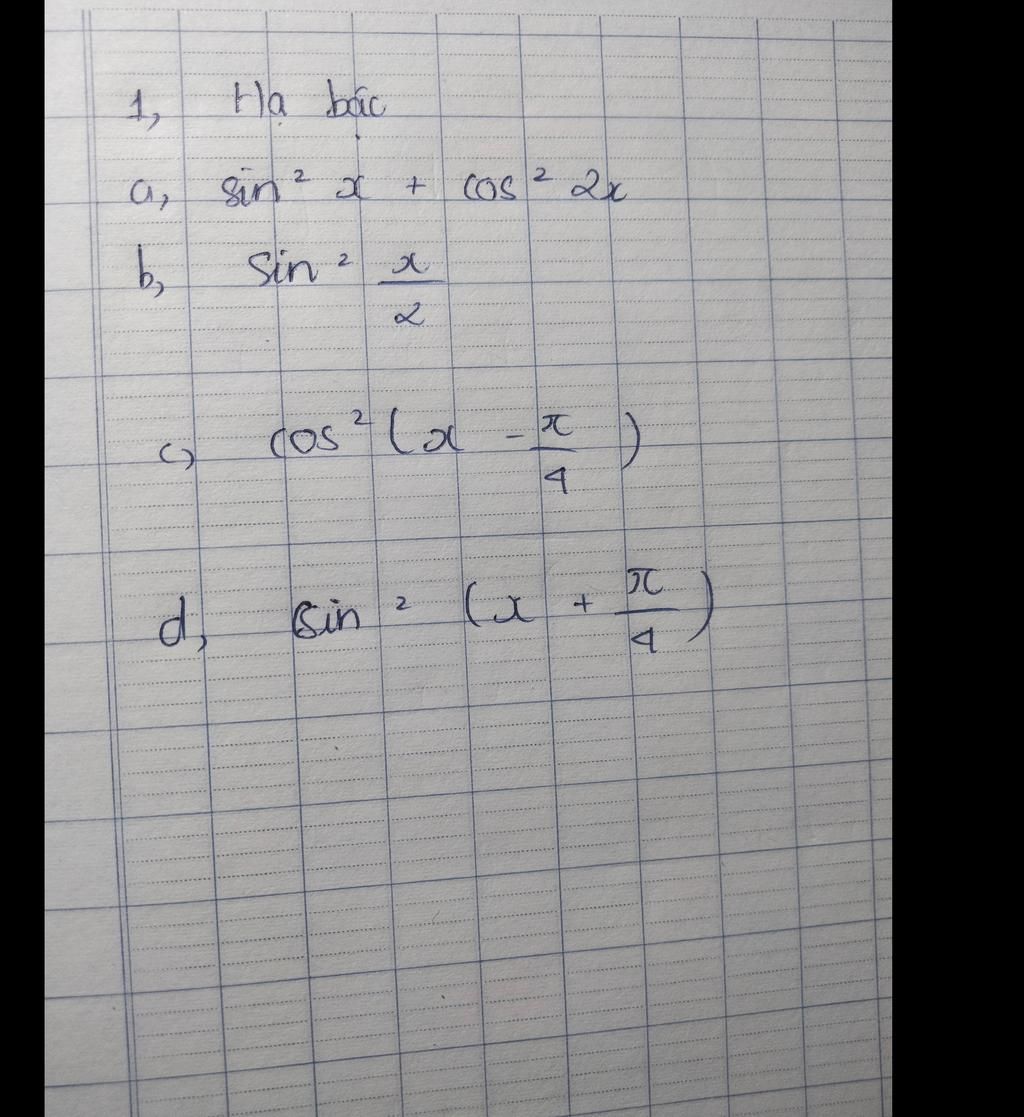 1, Hạ bậc
a, sin² x + cos² 2x
b, sin² x/2
c, cos² (x - π/4)
d, sin² (x + π/4)